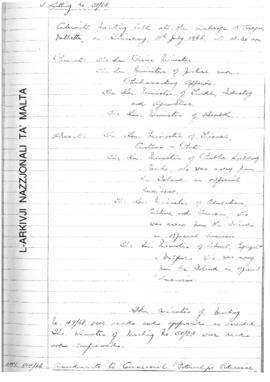 Sitting No.
Cabinet Meeting held at the Auberge d'Aragon,
Valletta on Thursday, 11th July 1968 at
Present: The Hon. Prime Minister
The Hon. Minister of Justice and
Parliamentary Affairs
The Hon. Minister of Trade, Industry
and Agriculture
The Hon. Minister of Health
Absent: The Hon. Minister of Finance,
Customs and Port
The Hon. Minister of Public Building
and Works, who was away from
the Island on official
business
The Hon. Minister of Education,
Culture and Tourism, who
was away from the Island
on official business
The Hon. Minister of Labour,
Welfare who was away
from the Island on official
business
The minutes of Meeting
No. 49/68 were read and approved as
The minutes of Meeting No. were read
and confirmed.
Amendments to Commercial Partnerships Ordinance
L-ARKIVJI NAZZJONALI TA' MALTA